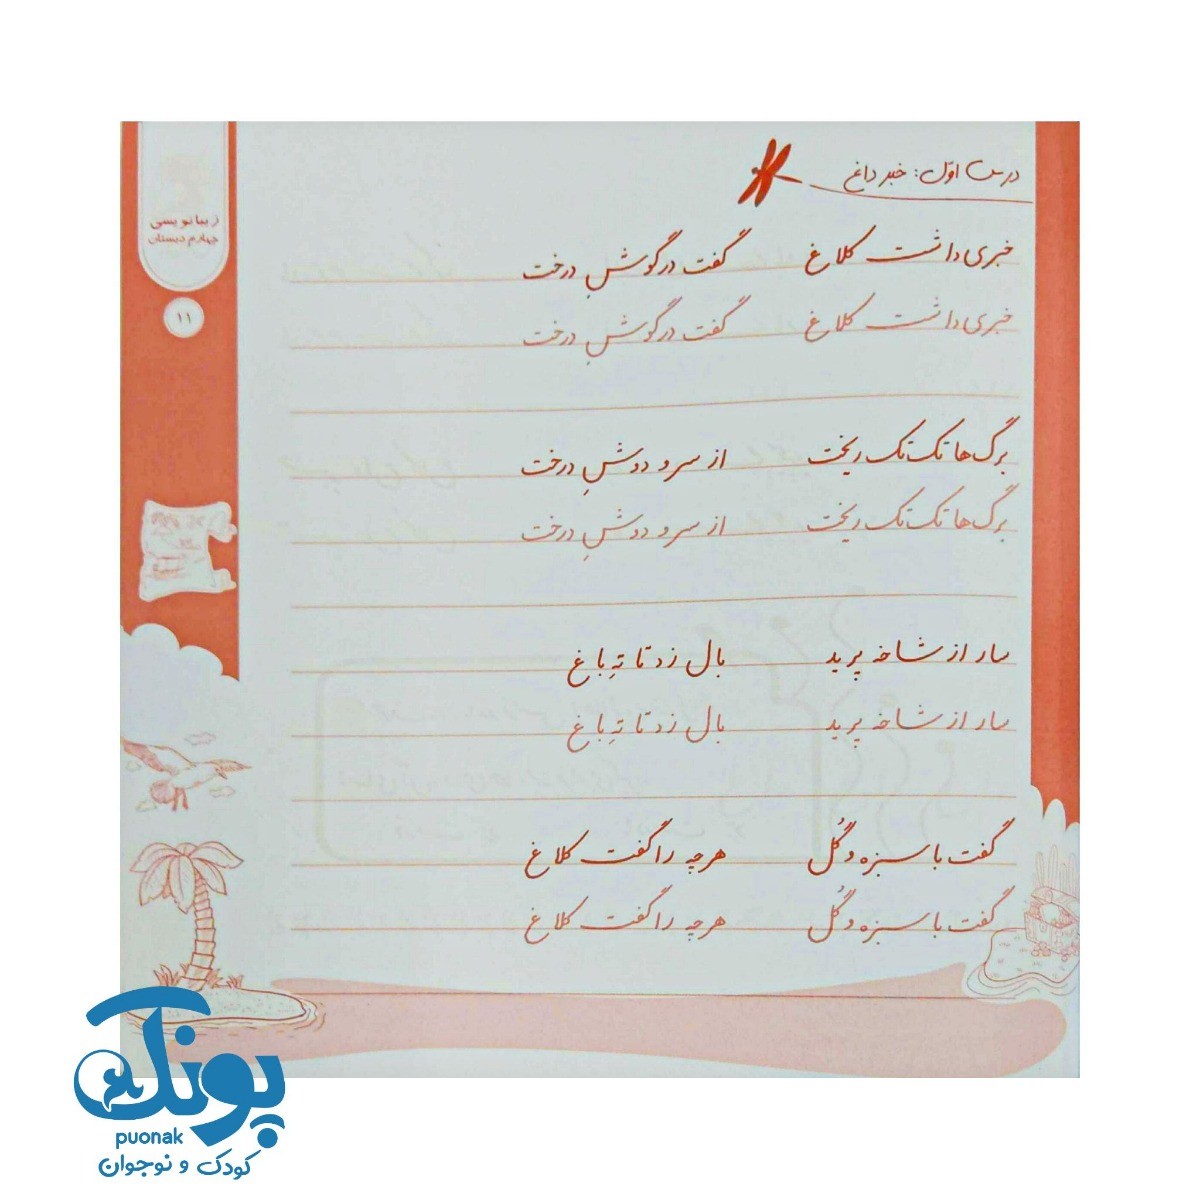 درس اوّل: خبر داغ
خبری داشت کلاغ گفت در گوشِ درخت
خبری داشت کلاغ گفت در گوشِ درخت
برگ‌ها تک تک ریخت از سر و دوشِ درخت
برگ‌ها تک تک ریخت از سر و دوشِ درخت
سار از شاخه پرید بال زد تا تهِ باغ
سار از شاخه پرید بال زد تا تهِ باغ
گفت با سبزه و گُل هر چه را گفت کلاغ
گفت با سبزه و گُل هر چه را گفت کلاغ
زیبانویسی
چهارم دبستان
۱۱
پونک
puonak
کودک و نوجوان